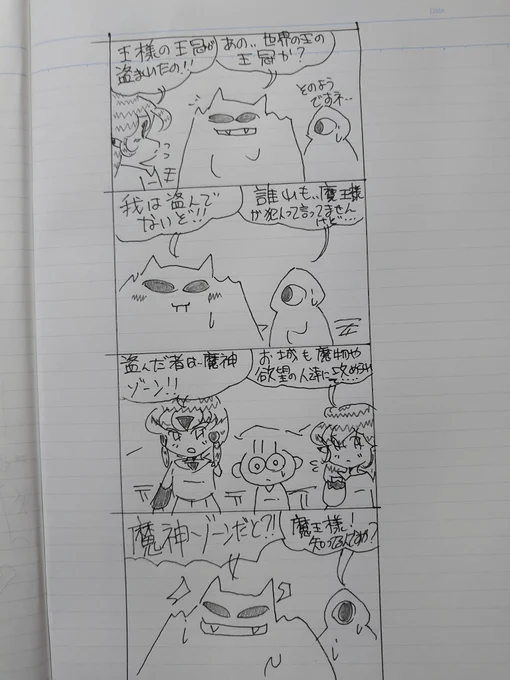 王様の王冠が
盗まれたの!!
あの..世界の王の
王冠か?
そのよう
ですネ…
我は盗んで
ないど!!!
誰れも..魔王様
が犯人って言ってません
けど…
盗んだ者は..魔神
ゾーン!!
お城も魔物や
欲望の人達に攻められ
魔神ゾーンだと?!!
魔王様!
知ってるんですか?